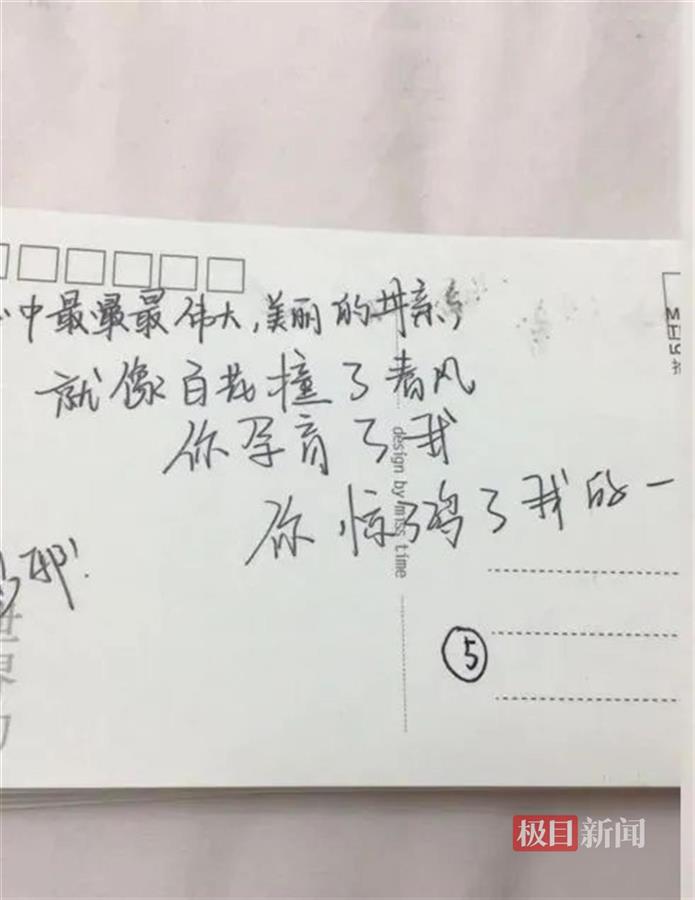 中最最最伟大,美丽的母亲,
就像百花撞了春风
你孕育了我
你惊鸿了我的一
design by miss time
那!
世界
5
极目新闻